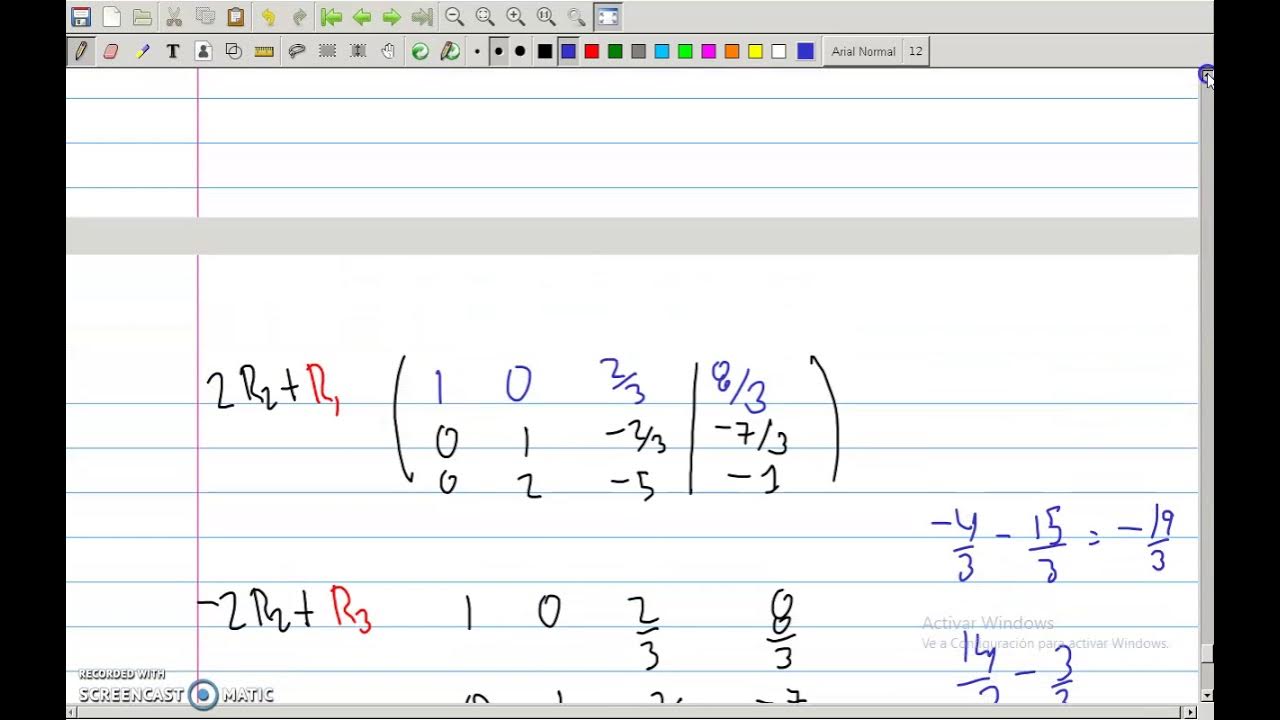 Arial Normal 12
2R2+R1 1 0 2/3 8/3
0 1 -2/3 -7/3
0 2 -5 -1
-4/3 - 15/3 = -19/3
-2R2+R3 1 0 2/3 8/3
Activar Windows
Ve a Configuración para activar Windows.
14 - 3
RECORDED WITH
SCREENCAST MATIC
-7